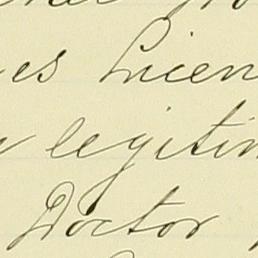 es Licen
legitim
Doctor